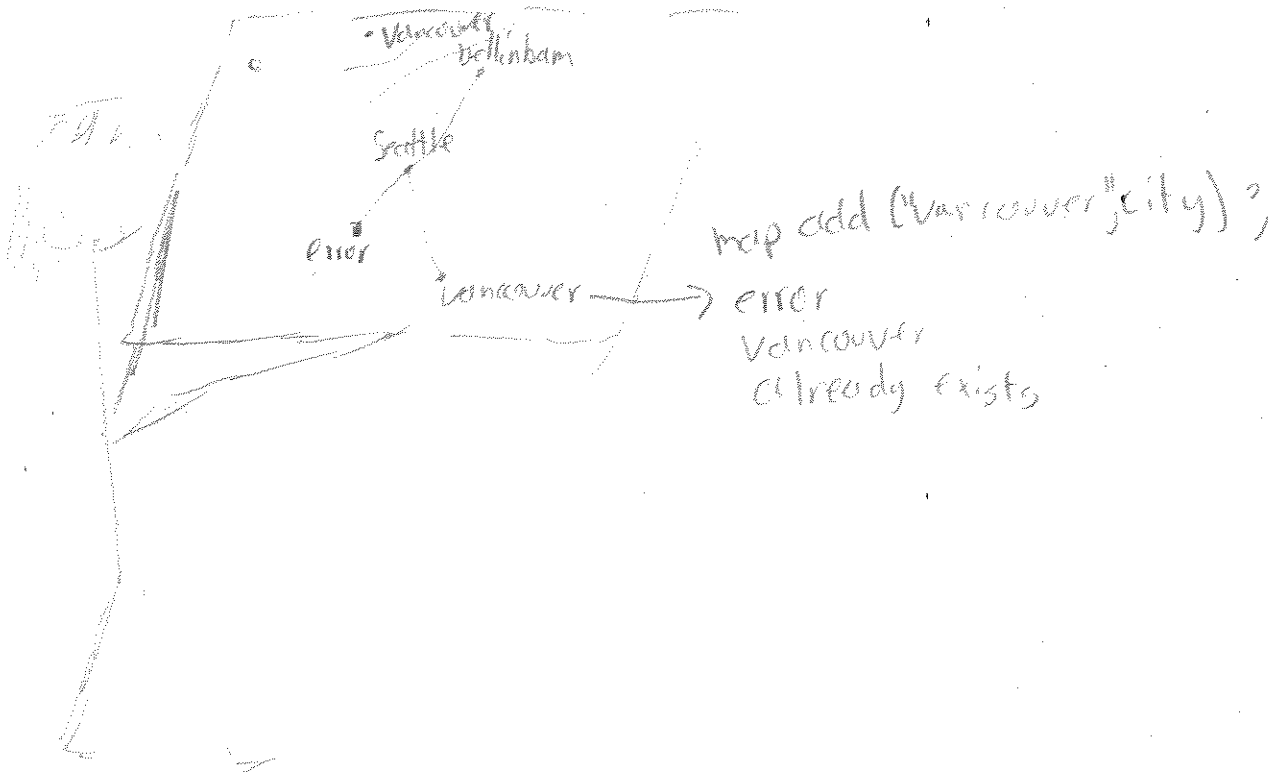 Vancouver
Bellinham
Seattle
error
Vancouver
map add ("Vancouver", city);
error
Vancouver
already exists